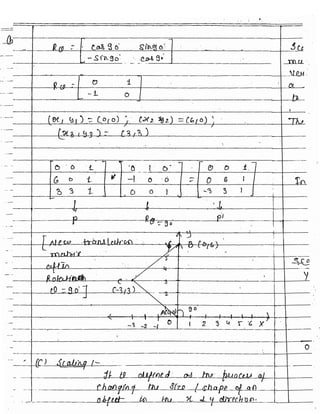 (b)
Rθ = [ cos 90 sin 90
-sin 90 cos 90 ]
Rθ = [ 0 1
-1 0 ]
(x1, y1) = (0,0) ; (x2 y2) = (6,0) ;
(x3, y3) = (3,3)
[ 0 0 1 ] [ 0 1 0 ] = [ 0 0 1 ]
[ 6 0 1 ] * [ -1 0 0 ] [ 0 6 1 ]
[ 3 3 1 ] [ 0 0 1 ] [ -3 3 1 ]
P Rθ = 90 P'
y
[ New translation B (0,6)
matrix
after
Rotation C
θ = 90°] (-3,3)
A(0,0) 90
-3 -2 -1 0 1 2 3 4 5 6 X
(C) Scaling :-
It is defined as the process of
changing the size / shape of an
object in the x & y direction.